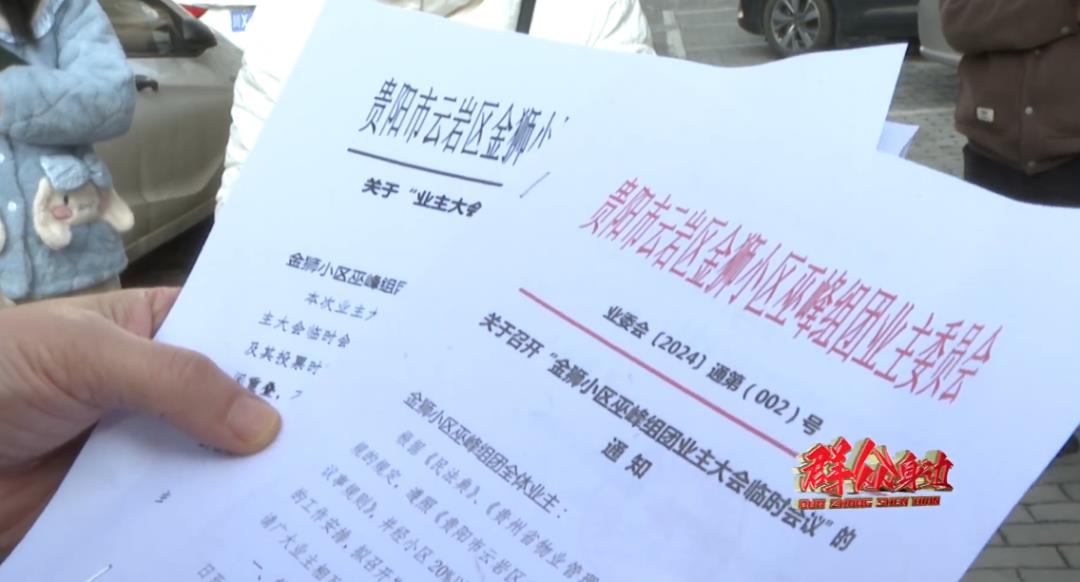 贵阳市云岩区金狮小
关于“业主大会
金狮小区巫峰组团
本次业主大
主大会临时会
及其投票时
重叠,
贵阳市云岩区金狮小区巫峰组团业主委员会
业委会(2024)通第(002)号
关于召开“金狮小区巫峰组团业主大会临时会议”的
通知
金狮小区巫峰组团全体业主:
根据《民法典》、《贵州省物业管理
规的规定,遵照《贵阳市云岩区
议事规则》,并经小区20%以
的工作安排,拟召开
请广大业主相互
群众身边
QUN ZHONG SHEN BIAN